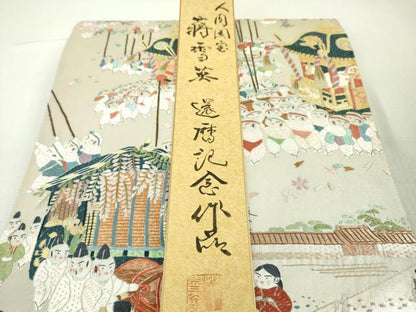 人間国宝
蒋雪英 還暦記念作品